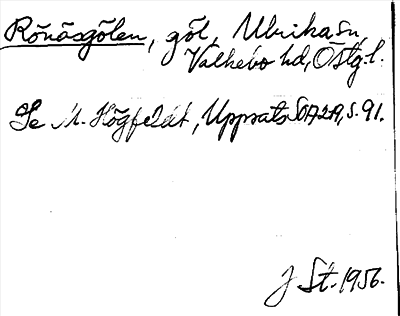 Rönäsgölen, göl, Ulrika sn,
Valkebo hd, Östg.l.
Se M. Högfeldt, Uppsats S. 91.
J St. 1956.